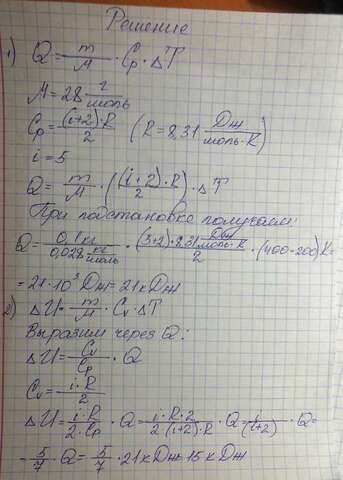 Решение
1) Q = m/M · Cp · ΔT
M = 28 г/моль
Cp = (i+2)·R/2 (R = 8,31 Дж/моль·К)
i = 5
Q = m/M · ((i+2)·R/2) · ΔT
При подстановке получаем:
Q = 0,1 кг/0,028 кг/моль · (5+2)·8,31 Дж/моль·К/2 · (400-200)К =
= 21·10³ Дж = 21 кДж
2) ΔU = m/M · Cv · ΔT
Выразим через Q:
ΔU = Cv/Cp · Q
Cv = i·R/2
ΔU = i·R/2·Cp · Q = i·R·2/2(i+2)·R · Q = i/(i+2) · Q =
= 5/7 · Q = 5/7 · 21 кДж = 15 кДж